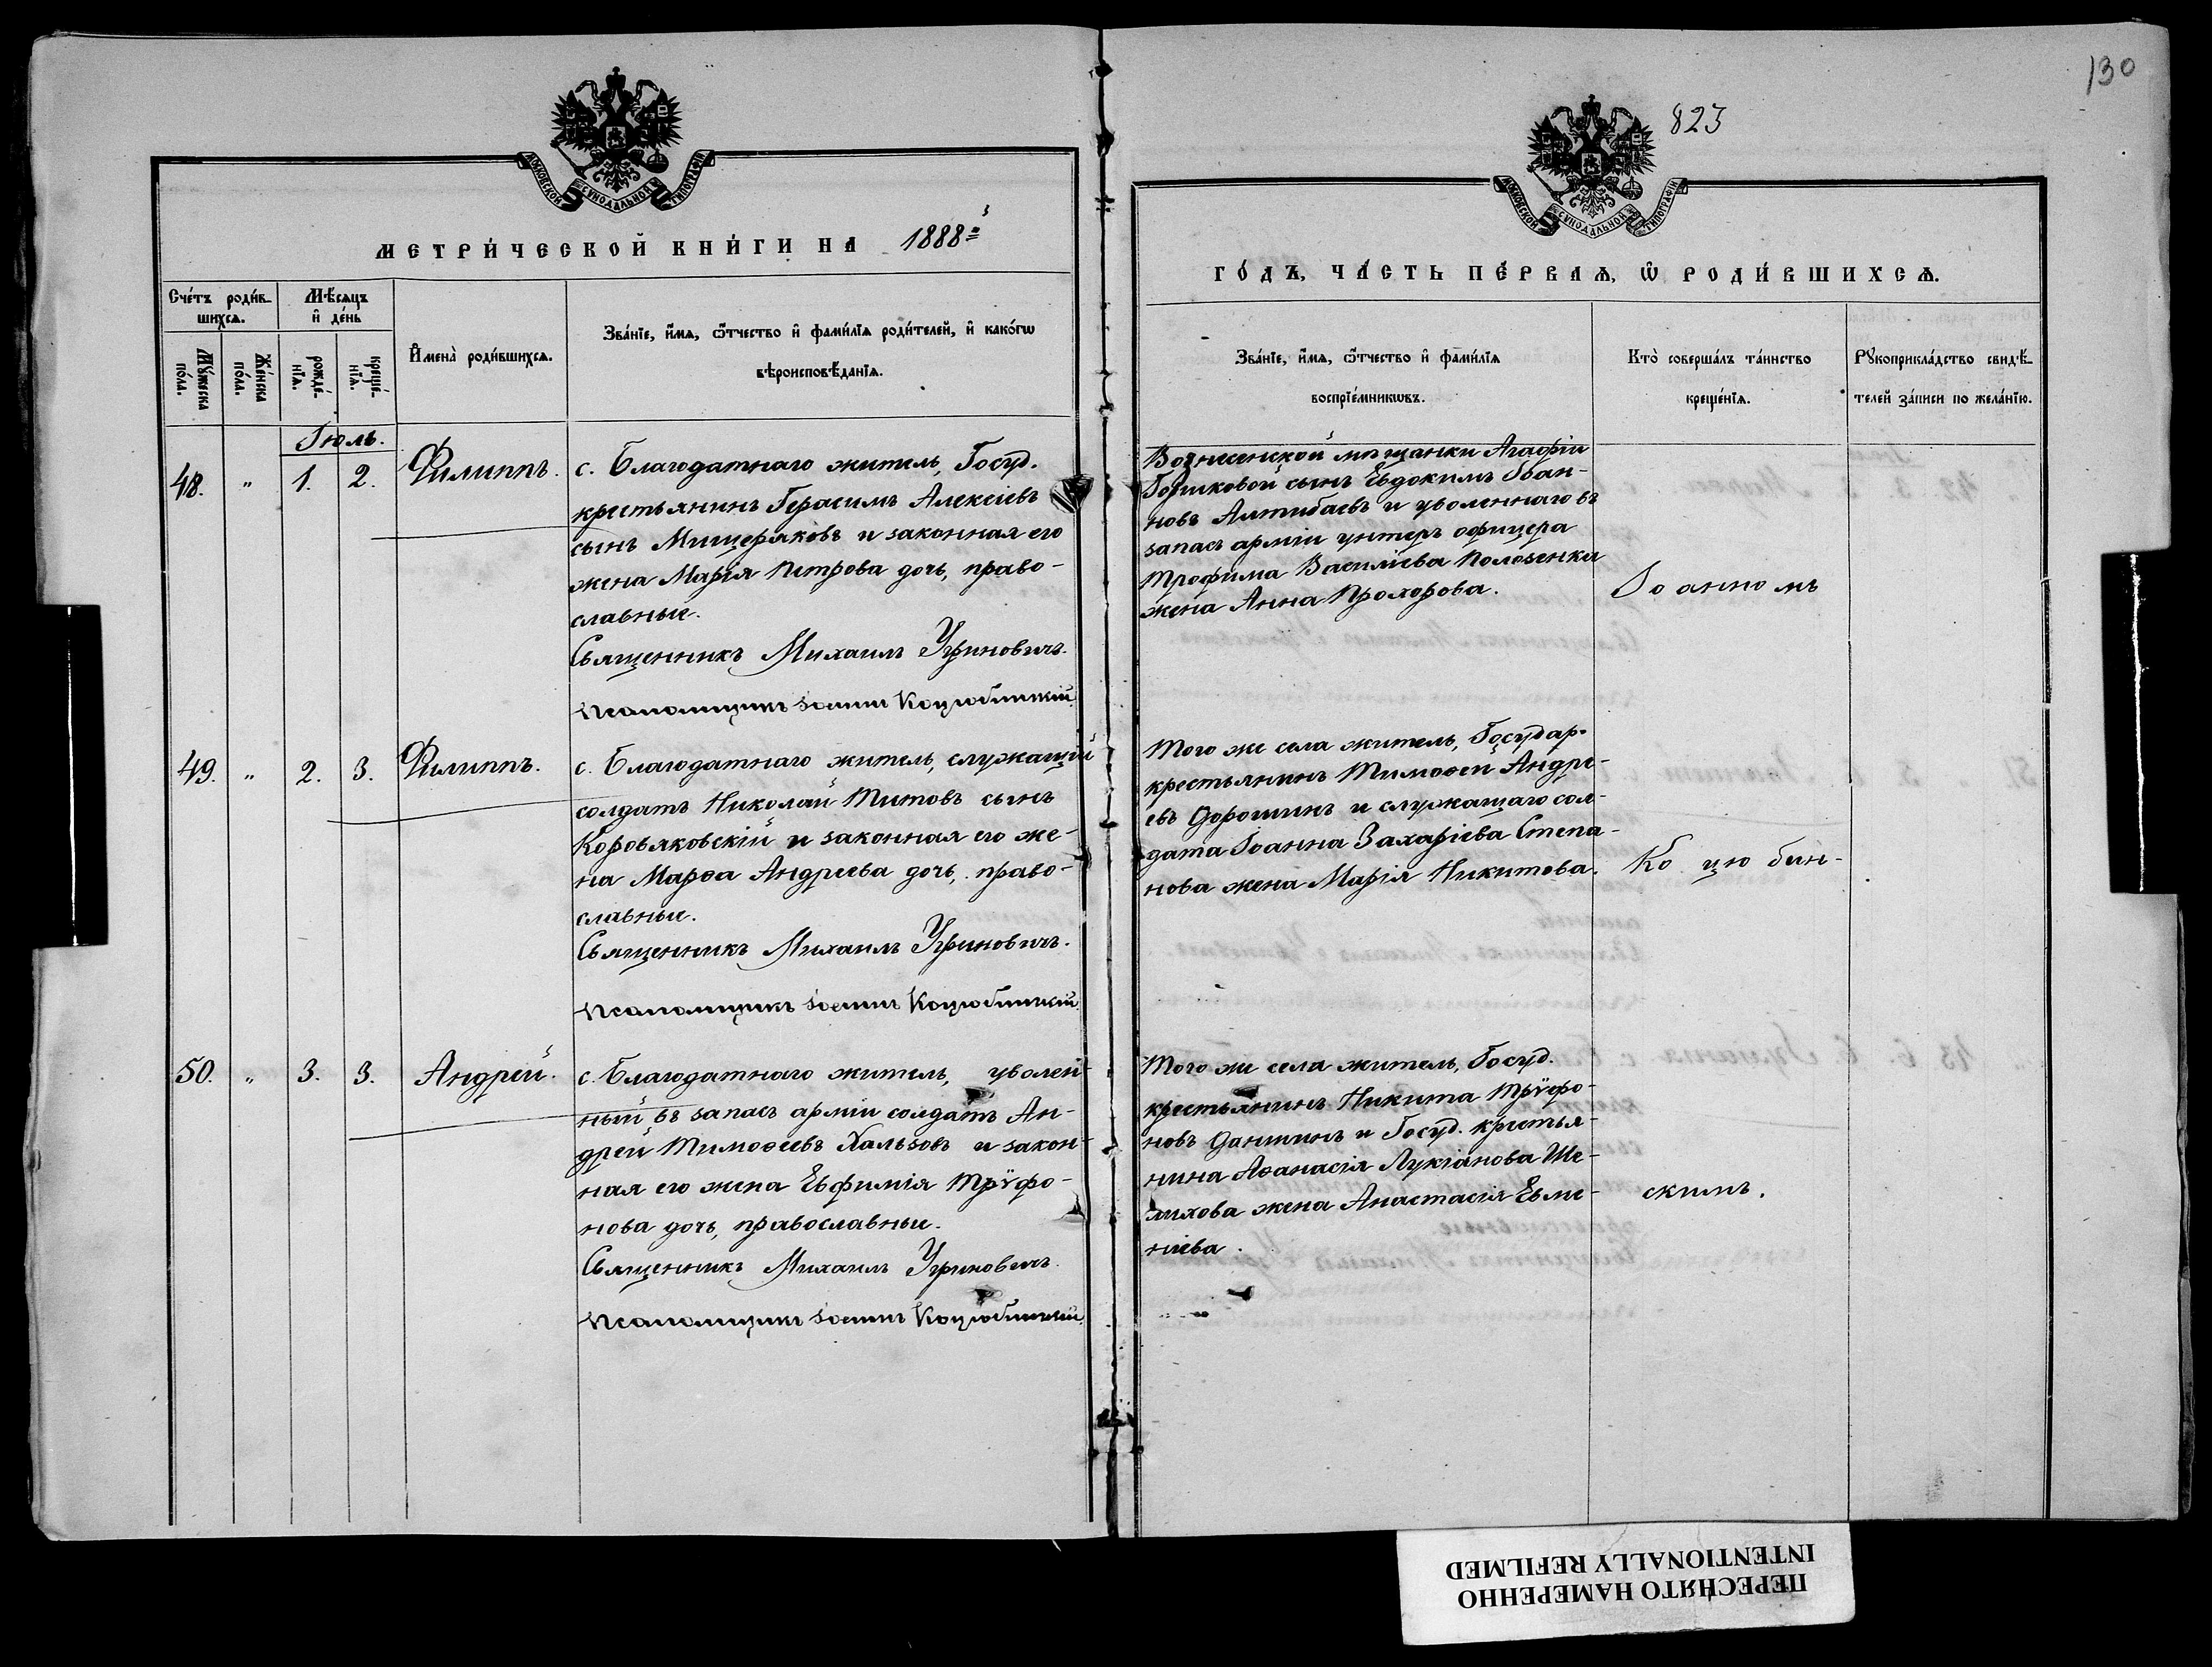 130
823
МОСКОВСКОЙ СУНОДАЛЬНОЙ ТИПОГРАФІИ
МОСКОВСКОЙ СУНОДАЛЬНОЙ ТИПОГРАФІИ
МЕТРИ́ЧЕСКОЙ КНИ́ГИ НА 1888й
ГО́ДЪ, ЧА́СТЬ ПЕ́РВАѦ, Ѽ РОДИ́ВШИХСѦ.
Сче́тъ роди́в-
шихсѧ.
Мѣ́сѧцъ
и҆ де́нь
Мꙋ́жеска
по́ла.
Же́нска
по́ла.
рожде́-
нїѧ.
креще́-
нїѧ.
И҆мена̀ роди́вшихсѧ.
Зва́нїе, и҆́мѧ, ѻ҆́тчество и҆ фами́лїѧ роди́телей, и҆ како́гѡ
вѣроисповѣ́данїѧ.
Зва́нїе, и҆́мѧ, ѻ҆́тчество и҆ фами́лїѧ
воспрїе́мникѡвъ.
Кто̀ соверша́лъ та́инство
креще́нїѧ.
Рꙋкоприкла́дство свидѣ́-
телей за́писи по жела́нїю.
Іюль.
48. " 1. 2. Филиппъ.
с. Благодатнаго житель, Госуд.
крестьянинъ Герасимъ Алексіевъ
сынъ Мищеряковъ и законная его
жена Марія Петрова дочь, право-
славные.
Священникъ Михаилъ Угриновичъ.
Псаломщикъ Іоаннъ Коцюбинскій.
Вознесенской мѣщанки Агафіи
сынъ Евдокимъ Іоан-
новъ Алтибаевъ и уволеннаго въ
запасъ арміи унтеръ офицера
Трофима Василіева Полозенка
жена Анна Прохорова.
Іоанномъ
49. " 2. 3. Филиппъ.
с. Благодатнаго житель, служащій
солдатъ Николай Титовъ сынъ
Коровяковскій и законная его же-
на Марѳа Андреева дочь, право-
славные.
Священникъ Михаилъ Угриновичъ.
Псаломщикъ Іоаннъ Коцюбинскій.
Того же села житель, Государ.
крестьянинъ Тимоѳей Андре-
евъ Дорошинъ и служащаго сол-
дата Іоанна Захаріева Степа-
нова жена Марія Никитова.
Коцюбин-
50. " 3. 3. Андрей.
с. Благодатнаго житель, уволен-
ный въ запасъ арміи солдатъ Ан-
дрей Тимоѳеевъ Хальзовъ и закон-
ная его жена Евфимія Трѵфо-
нова дочь, православные.
Священникъ Михаилъ Угриновичъ.
Псаломщикъ Іоаннъ Коцюбинскій.
Того же села житель, Госуд.
крестьянинъ Никита Трѵфо-
новъ Даншинъ и Госуд. крестья-
нина Аѳанасія Лукіанова Ше-
лихова жена Анастасія Евме-
ніева.
скимъ.
ПЕРЕСНЯТО НАМЕРЕННО
INTENTIONALLY REFILMED